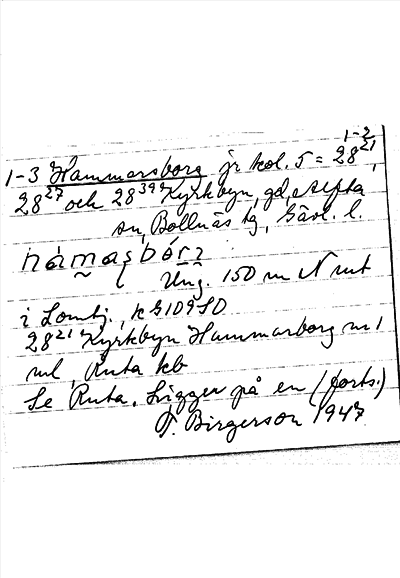 1-2
1-3 Hammarsborg jr kol. 5 = 28²¹,
28²⁷ och 28³⁹² Kyrkbyn, gd, Alfta
sn, Bollnäs tg, Gävl. l.
hámaşbórj
Ung. 150 m N mt
i Lantj., kG109SD
28²¹ Kyrkbyn Hammarborg nr 1
ml, Ruta kb
Se Ruta. Ligger på en (forts.)
T. Birgerson 1947